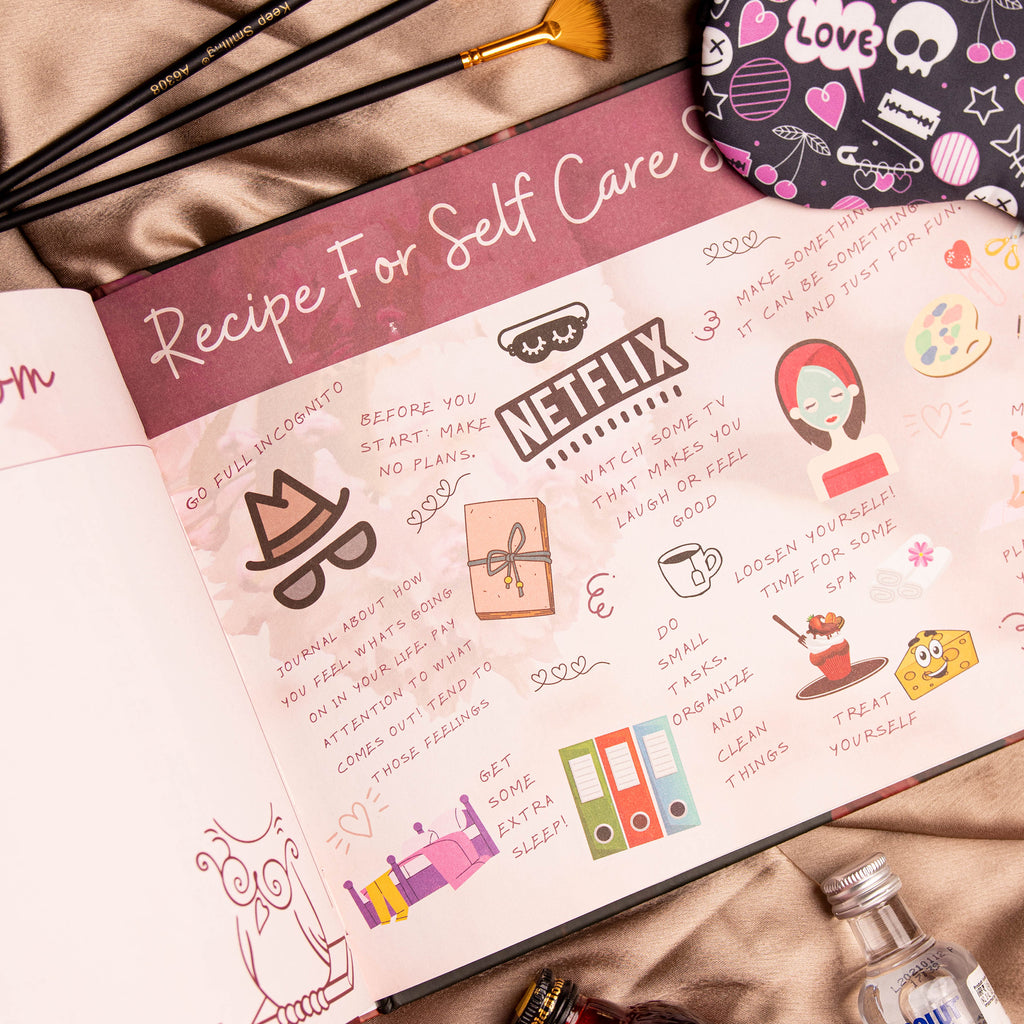 Keep Smiling® A6308
LOVE
Recipe For Self Care S
om
GO FULL INCOGNITO
BEFORE YOU
START: MAKE
NO PLANS.
NETFLIX
WATCH SOME TV
THAT MAKES YOU
LAUGH OR FEEL
GOOD
MAKE SOMETHING
IT CAN BE SOMETHING
AND JUST FOR FUN.
JOURNAL ABOUT HOW
YOU FEEL. WHATS GOING
ON IN YOUR LIFE. PAY
ATTENTION TO WHAT
COMES OUT! TEND TO
THOSE FEELINGS
LOOSEN YOURSELF!
TIME FOR SOME
SPA
DO
SMALL
TASKS.
ORGANIZE
AND
CLEAN
THINGS
TREAT
YOURSELF
GET
SOME
EXTRA
SLEEP!